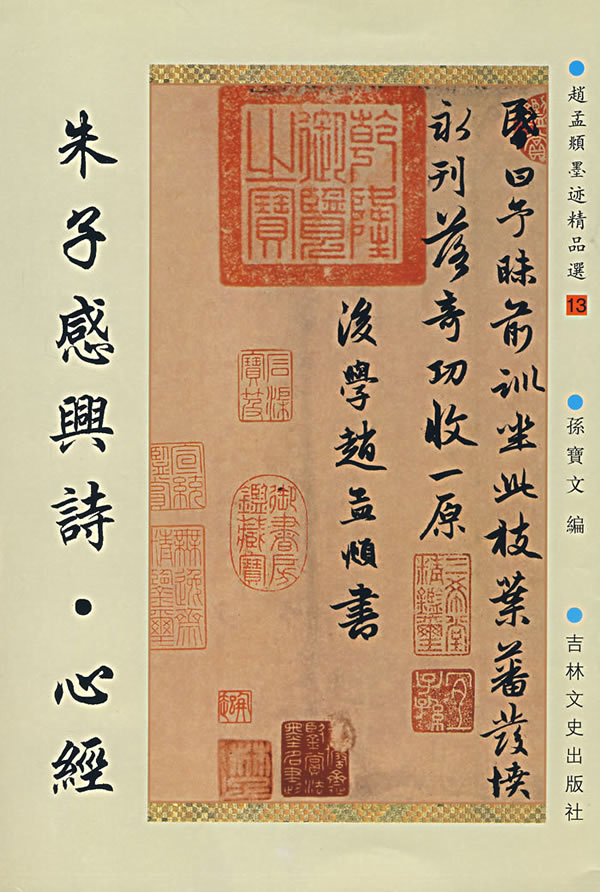 趙孟頫墨迹精品選 13
孫寶文 編
吉林文史出版社
曰予昧前訓坐此枝葉蕃發憤
永刊落奇功收一原
後學趙孟頫書
乾隆御覽之寶
石渠寶笈
宣統鑑賞
御書房鑑藏寶
無逸齋精鑑璽
三希堂精鑑璽
宜子孫
朱子感興詩·心經